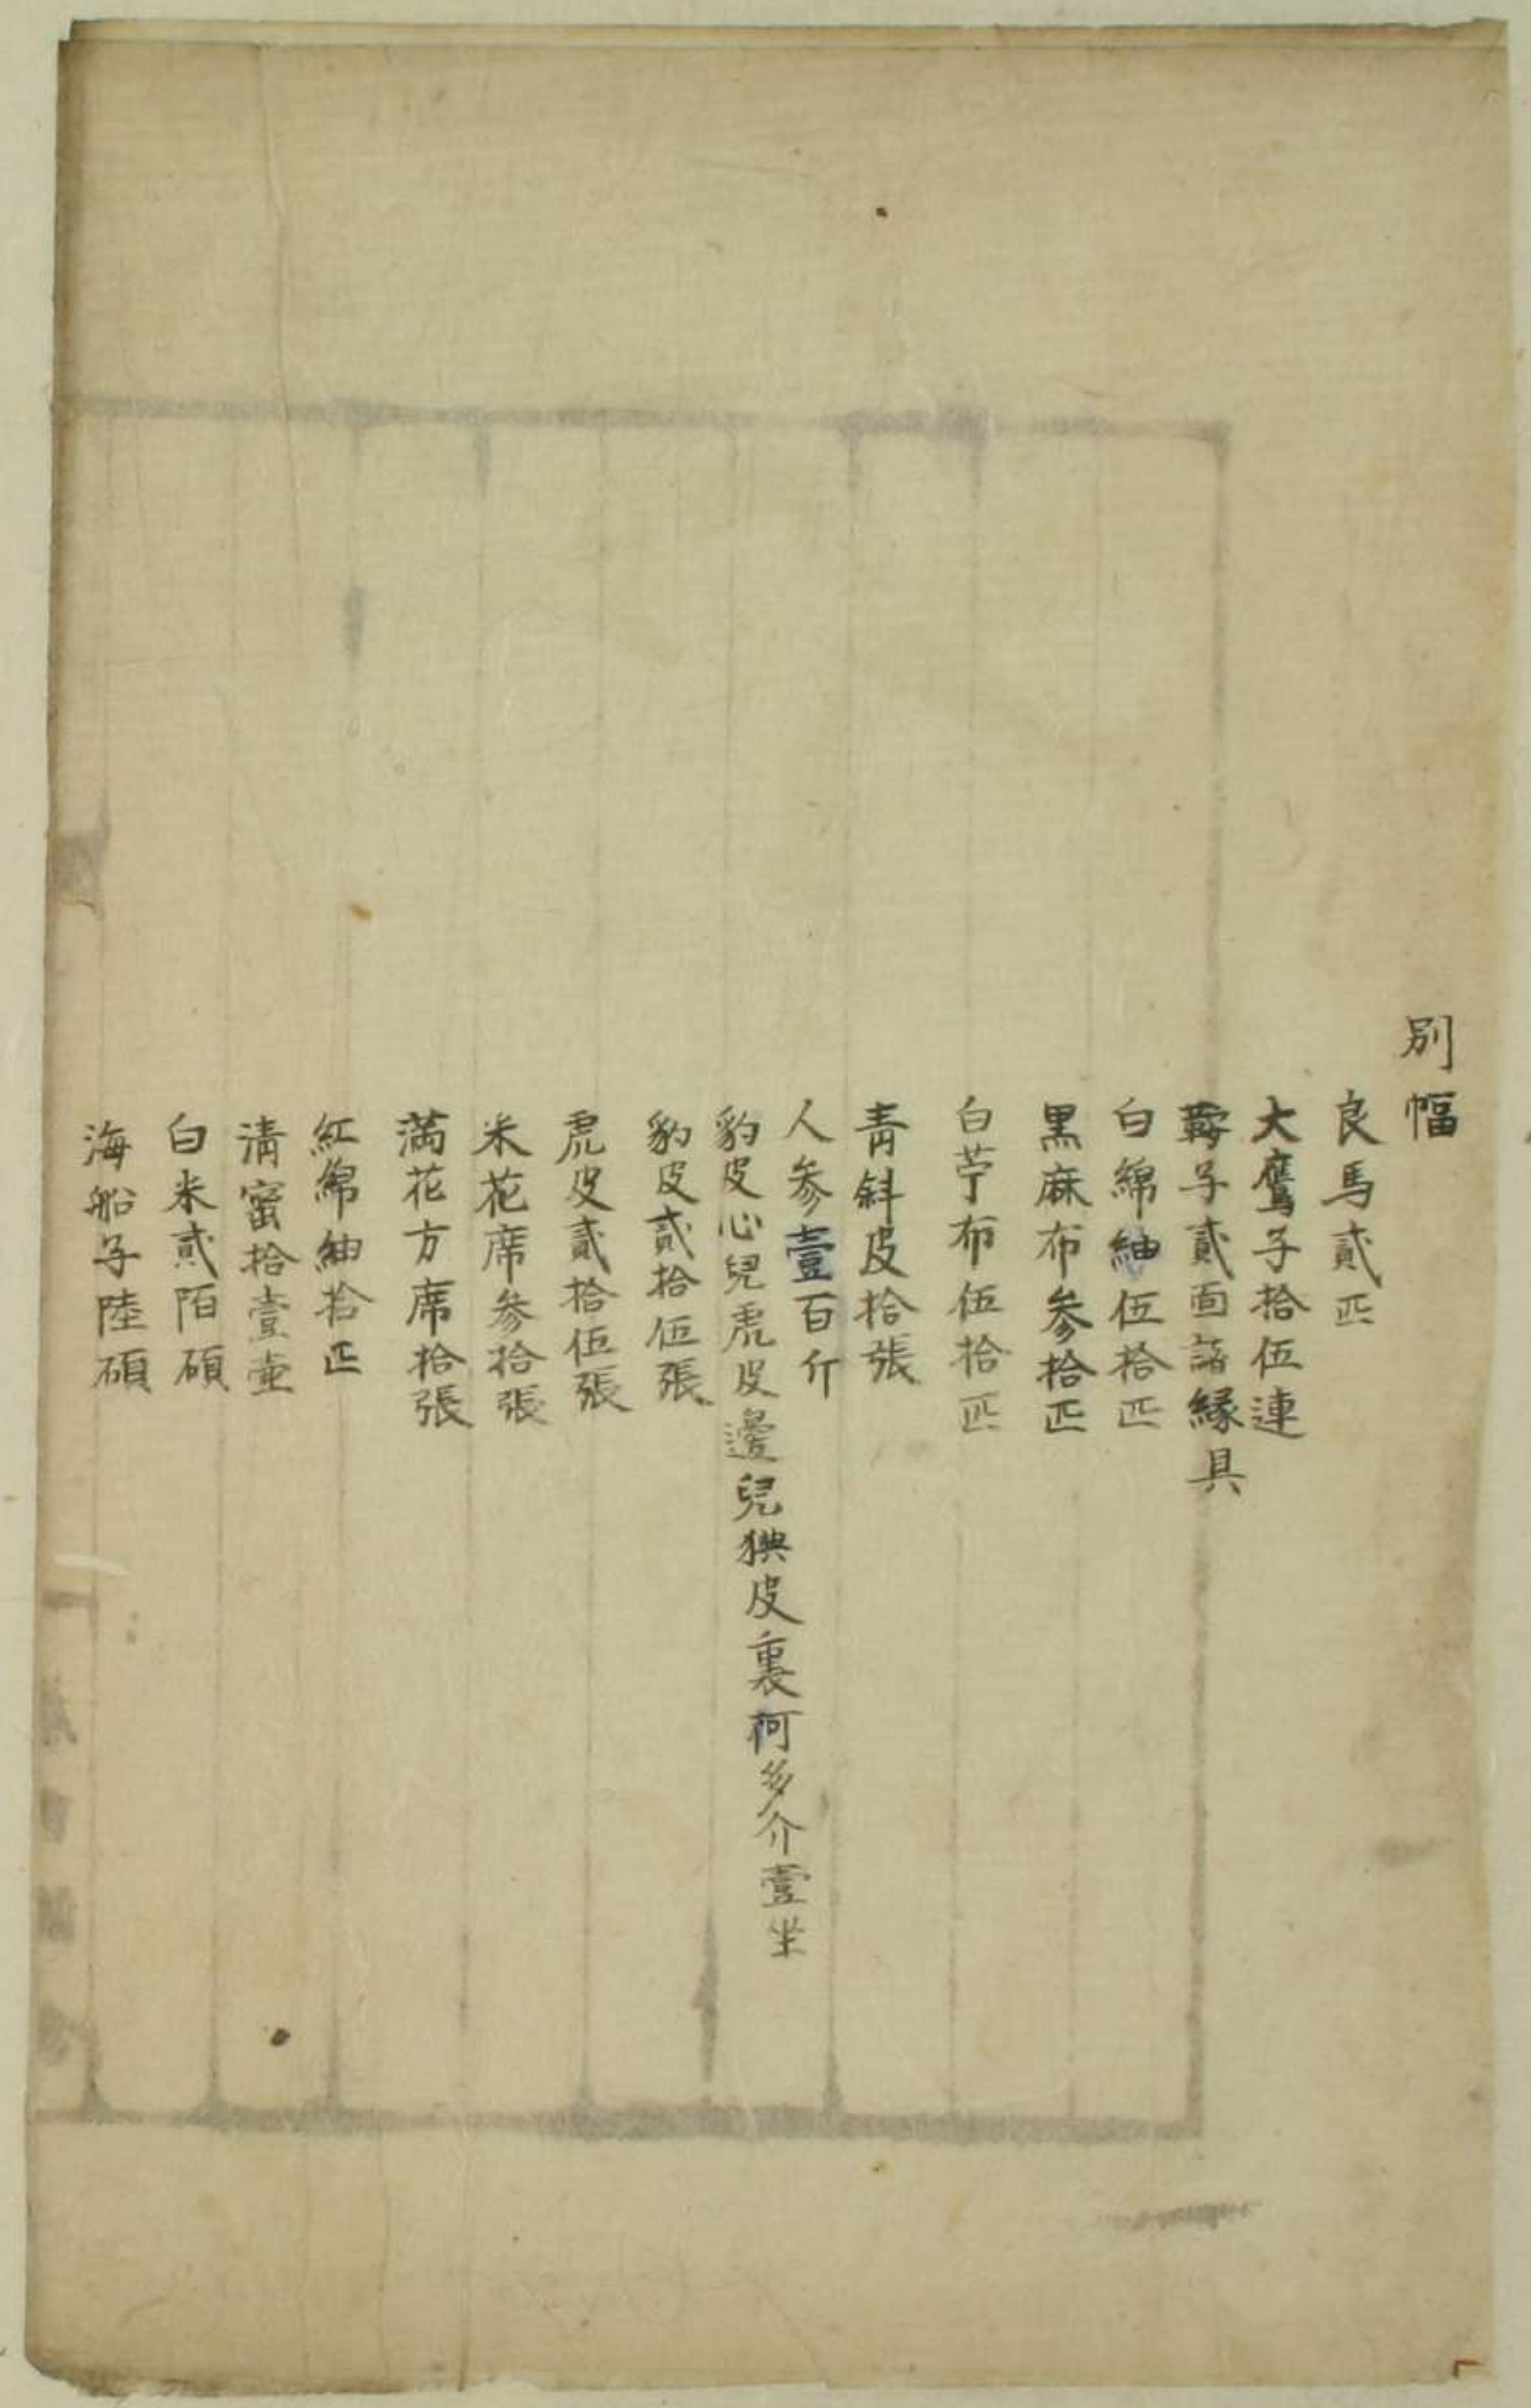 別幅
良馬貳匹
大鷹子拾伍連
鞍子貳面諸縁具
白綿紬伍拾匹
黒麻布参拾匹
白苧布伍拾匹
青斜皮拾張
人参壹百斤
豹皮心兒虎皮邊兒㺚皮裏阿多介壹坐
豹皮貳拾伍張
虎皮貳拾伍張
米花席参拾張
満花方席拾張
紅綿紬拾匹
清蜜拾壹壷
白米貳陌碩
海船子陸碩